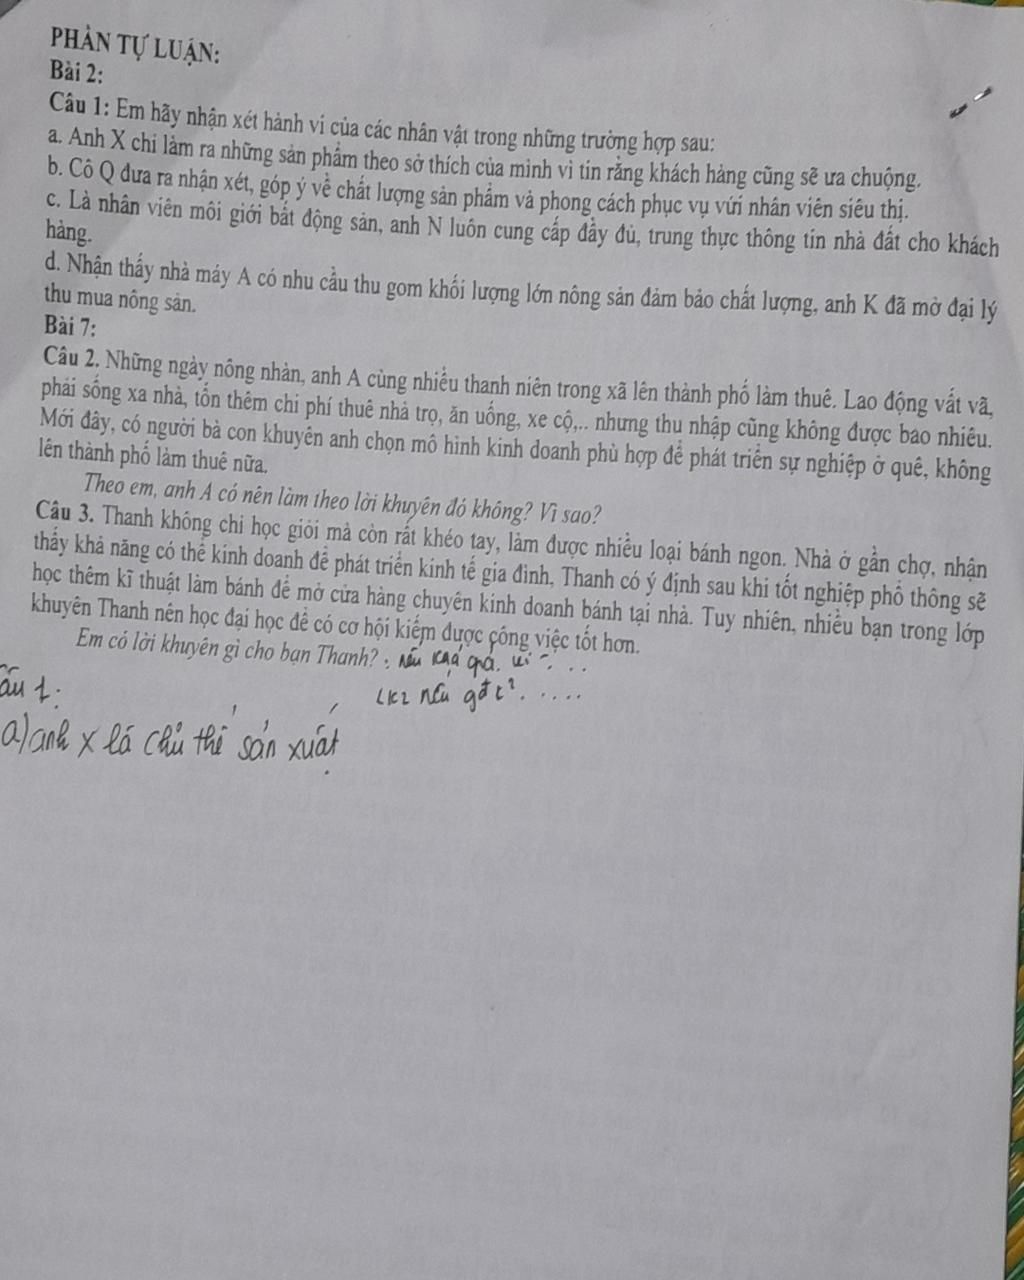 PHẦN TỰ LUẬN:
Bài 2:
Câu 1: Em hãy nhận xét hành vi của các nhân vật trong những trường hợp sau:
a. Anh X chỉ làm ra những sản phẩm theo sở thích của mình vì tin rằng khách hàng cũng sẽ ưa chuộng.
b. Cô Q đưa ra nhận xét, góp ý về chất lượng sản phẩm và phong cách phục vụ vứi nhân viên siêu thị.
c. Là nhân viên môi giới bất động sản, anh N luôn cung cấp đầy đủ, trung thực thông tin nhà đất cho khách
hàng.
d. Nhận thấy nhà máy A có nhu cầu thu gom khối lượng lớn nông sản đảm bảo chất lượng, anh K đã mở đại lý
thu mua nông sản.
Bài 7:
Câu 2. Những ngày nông nhàn, anh A cùng nhiều thanh niên trong xã lên thành phố làm thuê. Lao động vất vã,
phải sống xa nhà, tốn thêm chi phí thuê nhà trọ, ăn uống, xe cộ,.. nhưng thu nhập cũng không được bao nhiêu.
Mới đây, có người bà con khuyên anh chọn mô hình kinh doanh phù hợp để phát triển sự nghiệp ở quê, không
lên thành phố làm thuê nữa.
Theo em, anh A có nên làm theo lời khuyên đó không? Vì sao?
Câu 3. Thanh không chỉ học giỏi mà còn rất khéo tay, làm được nhiều loại bánh ngon. Nhà ở gần chợ, nhận
thấy khả năng có thể kinh doanh để phát triển kinh tế gia đình, Thanh có ý định sau khi tốt nghiệp phổ thông sẽ
học thêm kĩ thuật làm bánh để mở cửa hàng chuyên kinh doanh bánh tại nhà. Tuy nhiên, nhiều bạn trong lớp
khuyên Thanh nên học đại học để có cơ hội kiếm được công việc tốt hơn.
Em có lời khuyên gì cho bạn Thanh? : nếu
nếu
âu 1:
a) anh x là chủ thể sản xuất